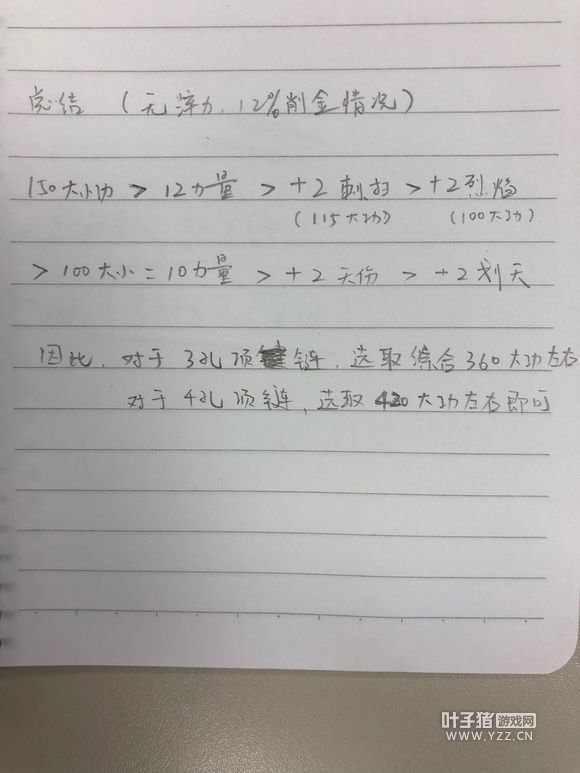 总结 (无淬力, 12%削金情况)
150大小功 > 12力量 > +2刺扫 > +2烈焰
(115大功) (100大功)
> 100大小 = 10力量 > +2天伤 > +2划天
因此, 对于3孔项链, 选取综合360大功左右
对于4孔项链, 选取420大功左右即可
叶子猪游戏网
WWW.YZZ.CN